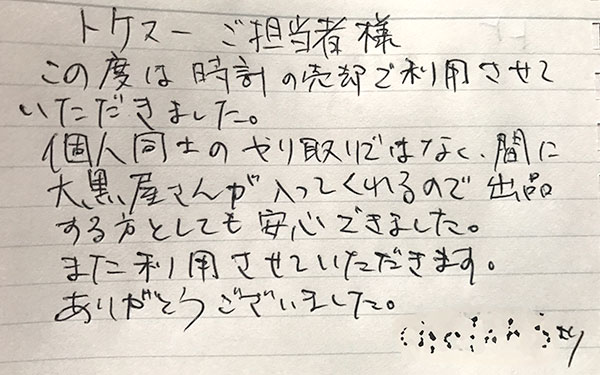 トケスー ご担当者様
この度は時計の売却で利用させて
いただきました。
個人同士のやり取りではなく、間に
大黒屋さんが入ってくれるので出品
する方としても安心できました。
また利用させていただきます。
ありがとうございました。
より